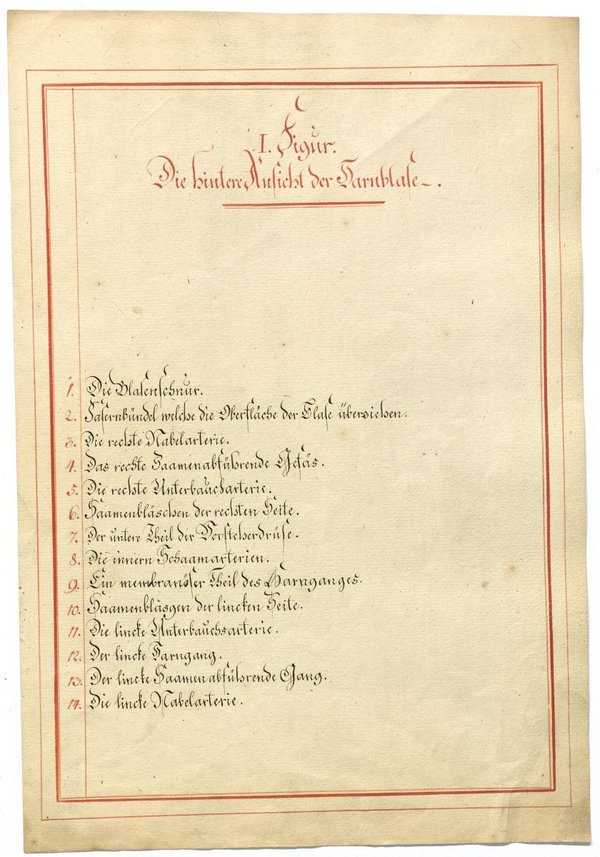 I. Figur.
Die hintere Ansicht der Harnblase.
1. Die Blasenschnur.
2. Fasernbündel welche die Oberfläche der Blase überziehen.
3. Die rechte Nabelarterie.
4. Das rechte Saamenabführende Gefäs.
5. Die rechte Unterbaucharterie.
6. Saamenbläschen der rechten Seite.
7. Der untere Theil der Vorsteherdrüse.
8. Die innern Schaamarterien.
9. Ein membranöser Theil des Harnganges.
10. Saamenbläsgen der lincken Seite.
11. Die lincke Unterbauchsarterie.
12. Der lincke Harngang.
13. Der lincke Saamenabführende Gang.
14. Die lincke Nabelarterie.